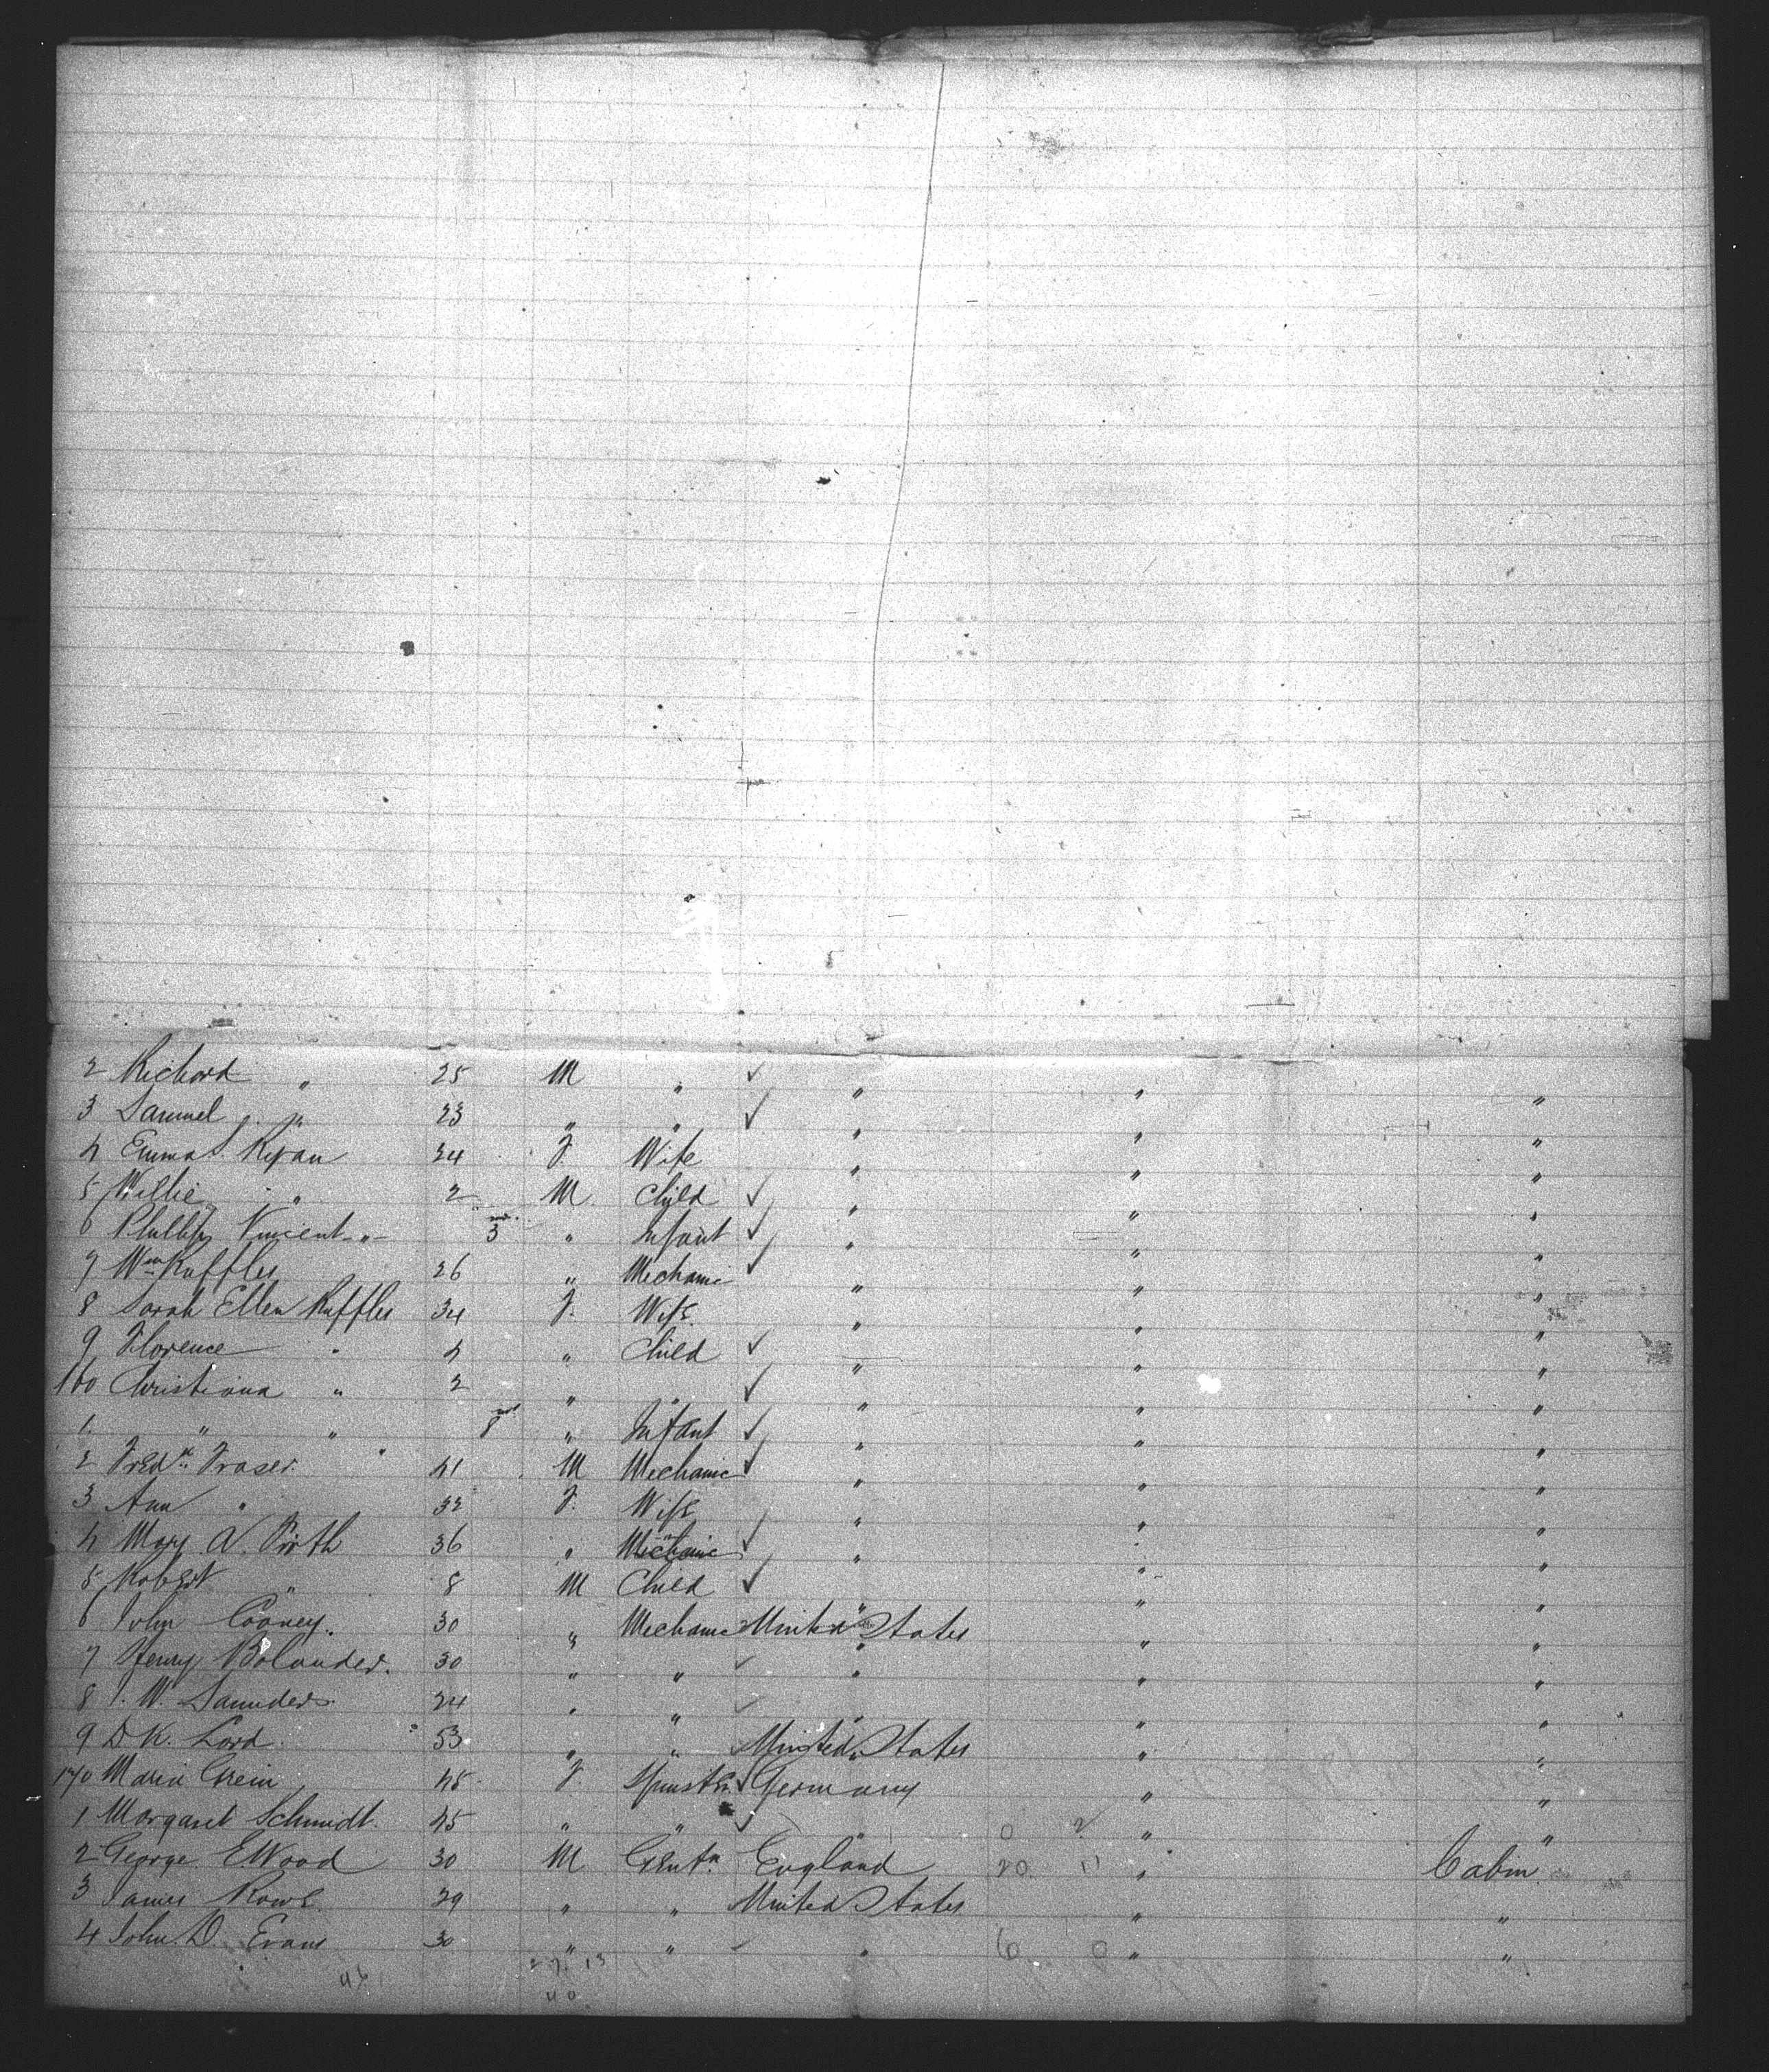 2 Richard " 25 M " ✓ " " "
3 Samuel J. " 23 " " ✓ " " "
4 Emma S. Ryan 24 F. Wife " " "
5 Willie " 2 M. Child ✓ " " "
6 Phillip Vincent -"- 3 " Infant ✓ " " "
7 Wm Ruffles 26 " Mechanic ✓ " " "
8 Sarah Ellen Ruffles 34 F. Wife. " " "
9 Florence " 4 " Child ✓ " " "
160 Christiana " 2 " " ✓ " " "
1. " " 8 " Infant ✓ " " "
2 Fredk. Fraser. 41 M Mechanic ✓ " " "
3 Ann " 32 F. Wife " " "
4 Mary A. Firth 36 " ✓ " " "
5 Robert " 8 M Child ✓ " " "
6 John Cooney. 30 " Mechanic United States " "
7 Henry Bolander. 30 " " ✓ " " "
8 J. W. Saunders. 24 " " ✓ " " "
9 D. K. Lord. 53 " " United States " "
170 Maria Grein 48 F. Spinster ✓ Germany " "
1 Margaret Schmidt. 45 " " ✓ " 0 2 " "
2 George E Wood 30 M Gentn. England 20 11 " Cabin.
3 James Rowe. 29 " " United States " "
4 John. D. Evans 30 " " ✓ " 6 0 " "
47 27. 13
40